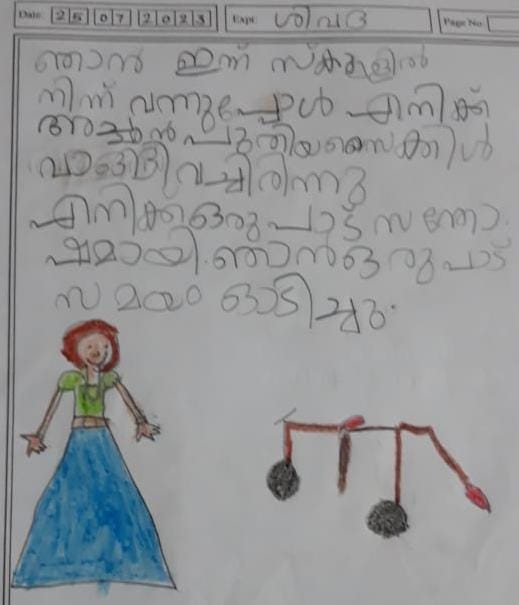 Date: 25 07 2023 Expt: ശിവദ Page No:
ഞാൻ ഇന്ന് സ്കൂളിൽ
നിന്ന് വന്നുപ്പോൾ എനിക്ക്
അച്ഛൻ പുതിയസൈക്കിൾ
വാങ്ങിവച്ചിരിന്നു
എനിക്ക്ഒരുപാട് സന്തോ.
ഷമായി.ഞാൻഒരുപാട്
സമയം ഓടിച്ചു.